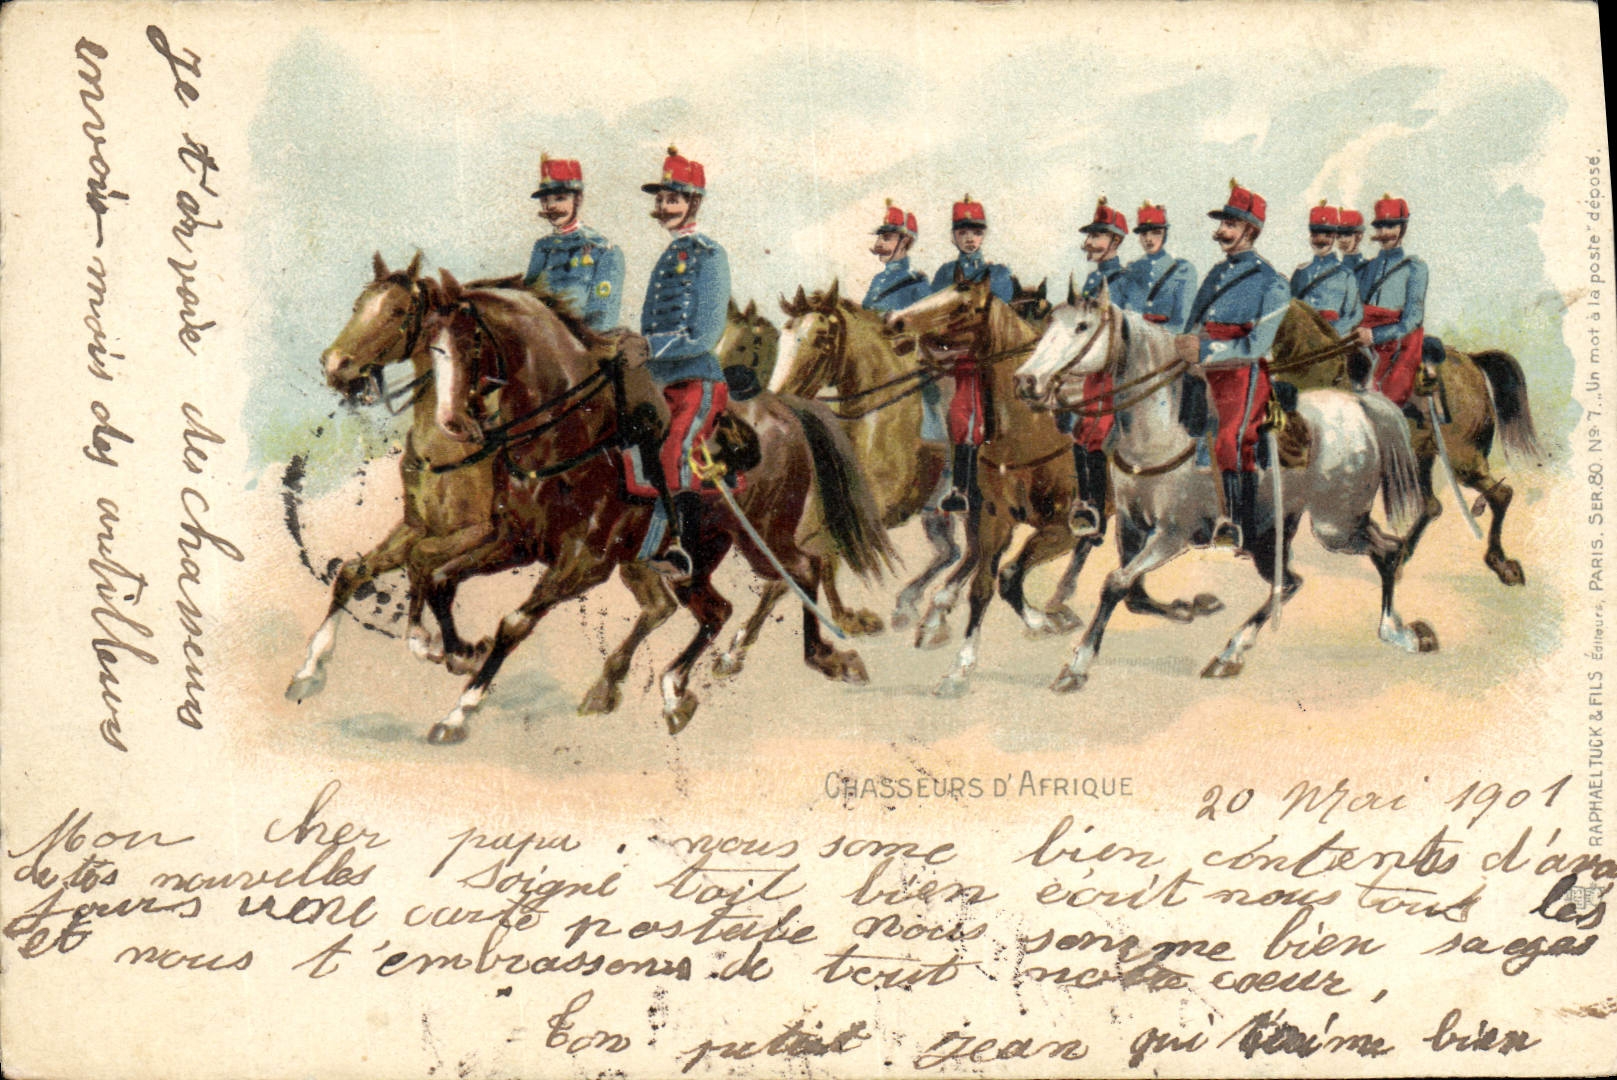 Je t'anvoie des chasseurs
envois-mois des artilleurs
CHASSEURS D'AFRIQUE
20 Mai 1901
Mon cher papa. nous some bien contents d'avoi
de tes nouvelles Soigne toit bien écrit nous tout les
jours une carte postale nous somme bien sages
et nous t'embrassons de tout notre cœur,
Ton petit Jean qui t'aime bien
RAPHAEL TUCK & FILS Éditeurs, PARIS. SER. 80 No 7. „Un mot à la poste" déposé.